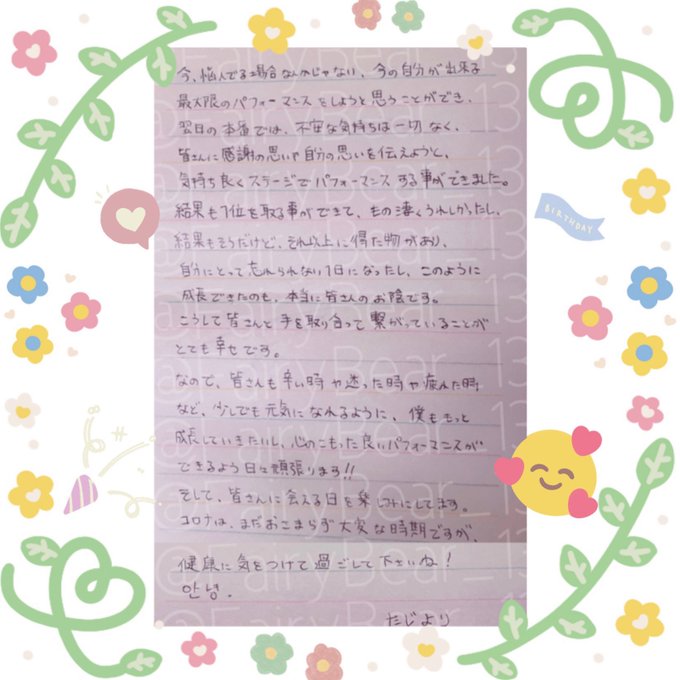 今、悩んでる場合なんかじゃない、今の自分が出来る
最大限のパフォーマンスをしようと思うことができ、
翌日の本番では、不安な気持ちは一切なく、
皆さんに感謝の思いや自分の思いを伝えようと、
気持ち良くステージでパフォーマンスする事ができました。
結果も1位を取る事ができて、もの凄くうれしかったし、
結果もそうだけど、それ以上に得た物があり、
自分にとって忘れられない1日になったし、このように
成長できたのも、本当に皆さんのお陰です。
こうして皆さんと手を取り合って繋がっていることが
とても幸せです。
なので、皆さんも辛い時や迷った時や疲れた時
など、少しでも元気になれるように、僕ももっと
成長していきたいし、心のこもった良いパフォーマンスが
できるよう日々頑張ります!!
そして、皆さんに会える日を楽しみにしてます。
コロナは、まだおこまらず大変な時期ですが、
健康に気をつけて過ごして下さいね!
안녕.
たじより
BIRTHDAY
@FairyBear_13